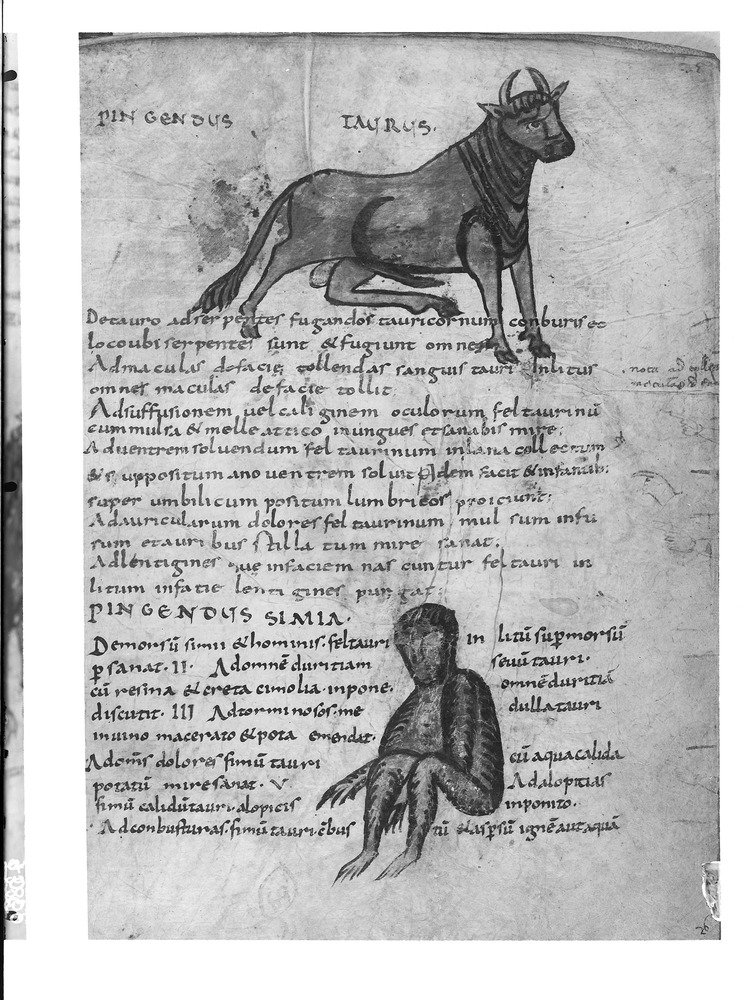 PINGENDUS TAURUS.
De tauro ad serpentes fugandos tauri cornum conburis et
loco ubi serpentes sunt & fugiunt omnes
Ad maculas de facie tollendas sanguis tauri inlitus
omnes maculas de facie tollit
Ad suffusionem vel caliginem oculorum fel taurinū
cum mulsa & melle attico inungues et sanabis mire;
Ad ventrem solvendum fel taurinum in lana collectum
& suppositum ano ventrem solvit idem facit & infantib;
super umbilicum positum lumbricos proiciunt;
Ad auricularum dolores fel taurinum mul sum infu
sum et auribus stillatum mire sanat;
Ad lentigines que in faciem nascuntur fel tauri in
litum in facie lentigines purgat;
PINGENDUS SIMIA.
De morsū simii & hominis. fel tauri in litū sup morsū
p sanat. II. Ad omnē duritiam sevū tauri.
cū resina & creta cimolia. inpone. omnē duritiā
discutit. III Ad torminosos. me dulla tauri
in vino macerato & pota emendat.
Ad om̄s dolores fimū tauri cū aqua calida
potatū mire sanat. V Ad alopitias
fimū calidū tauri. alopicis inponito.
Ad conbusturas. fimū tauri cōbus tū & aspsū ignē aut aquā
nota ad